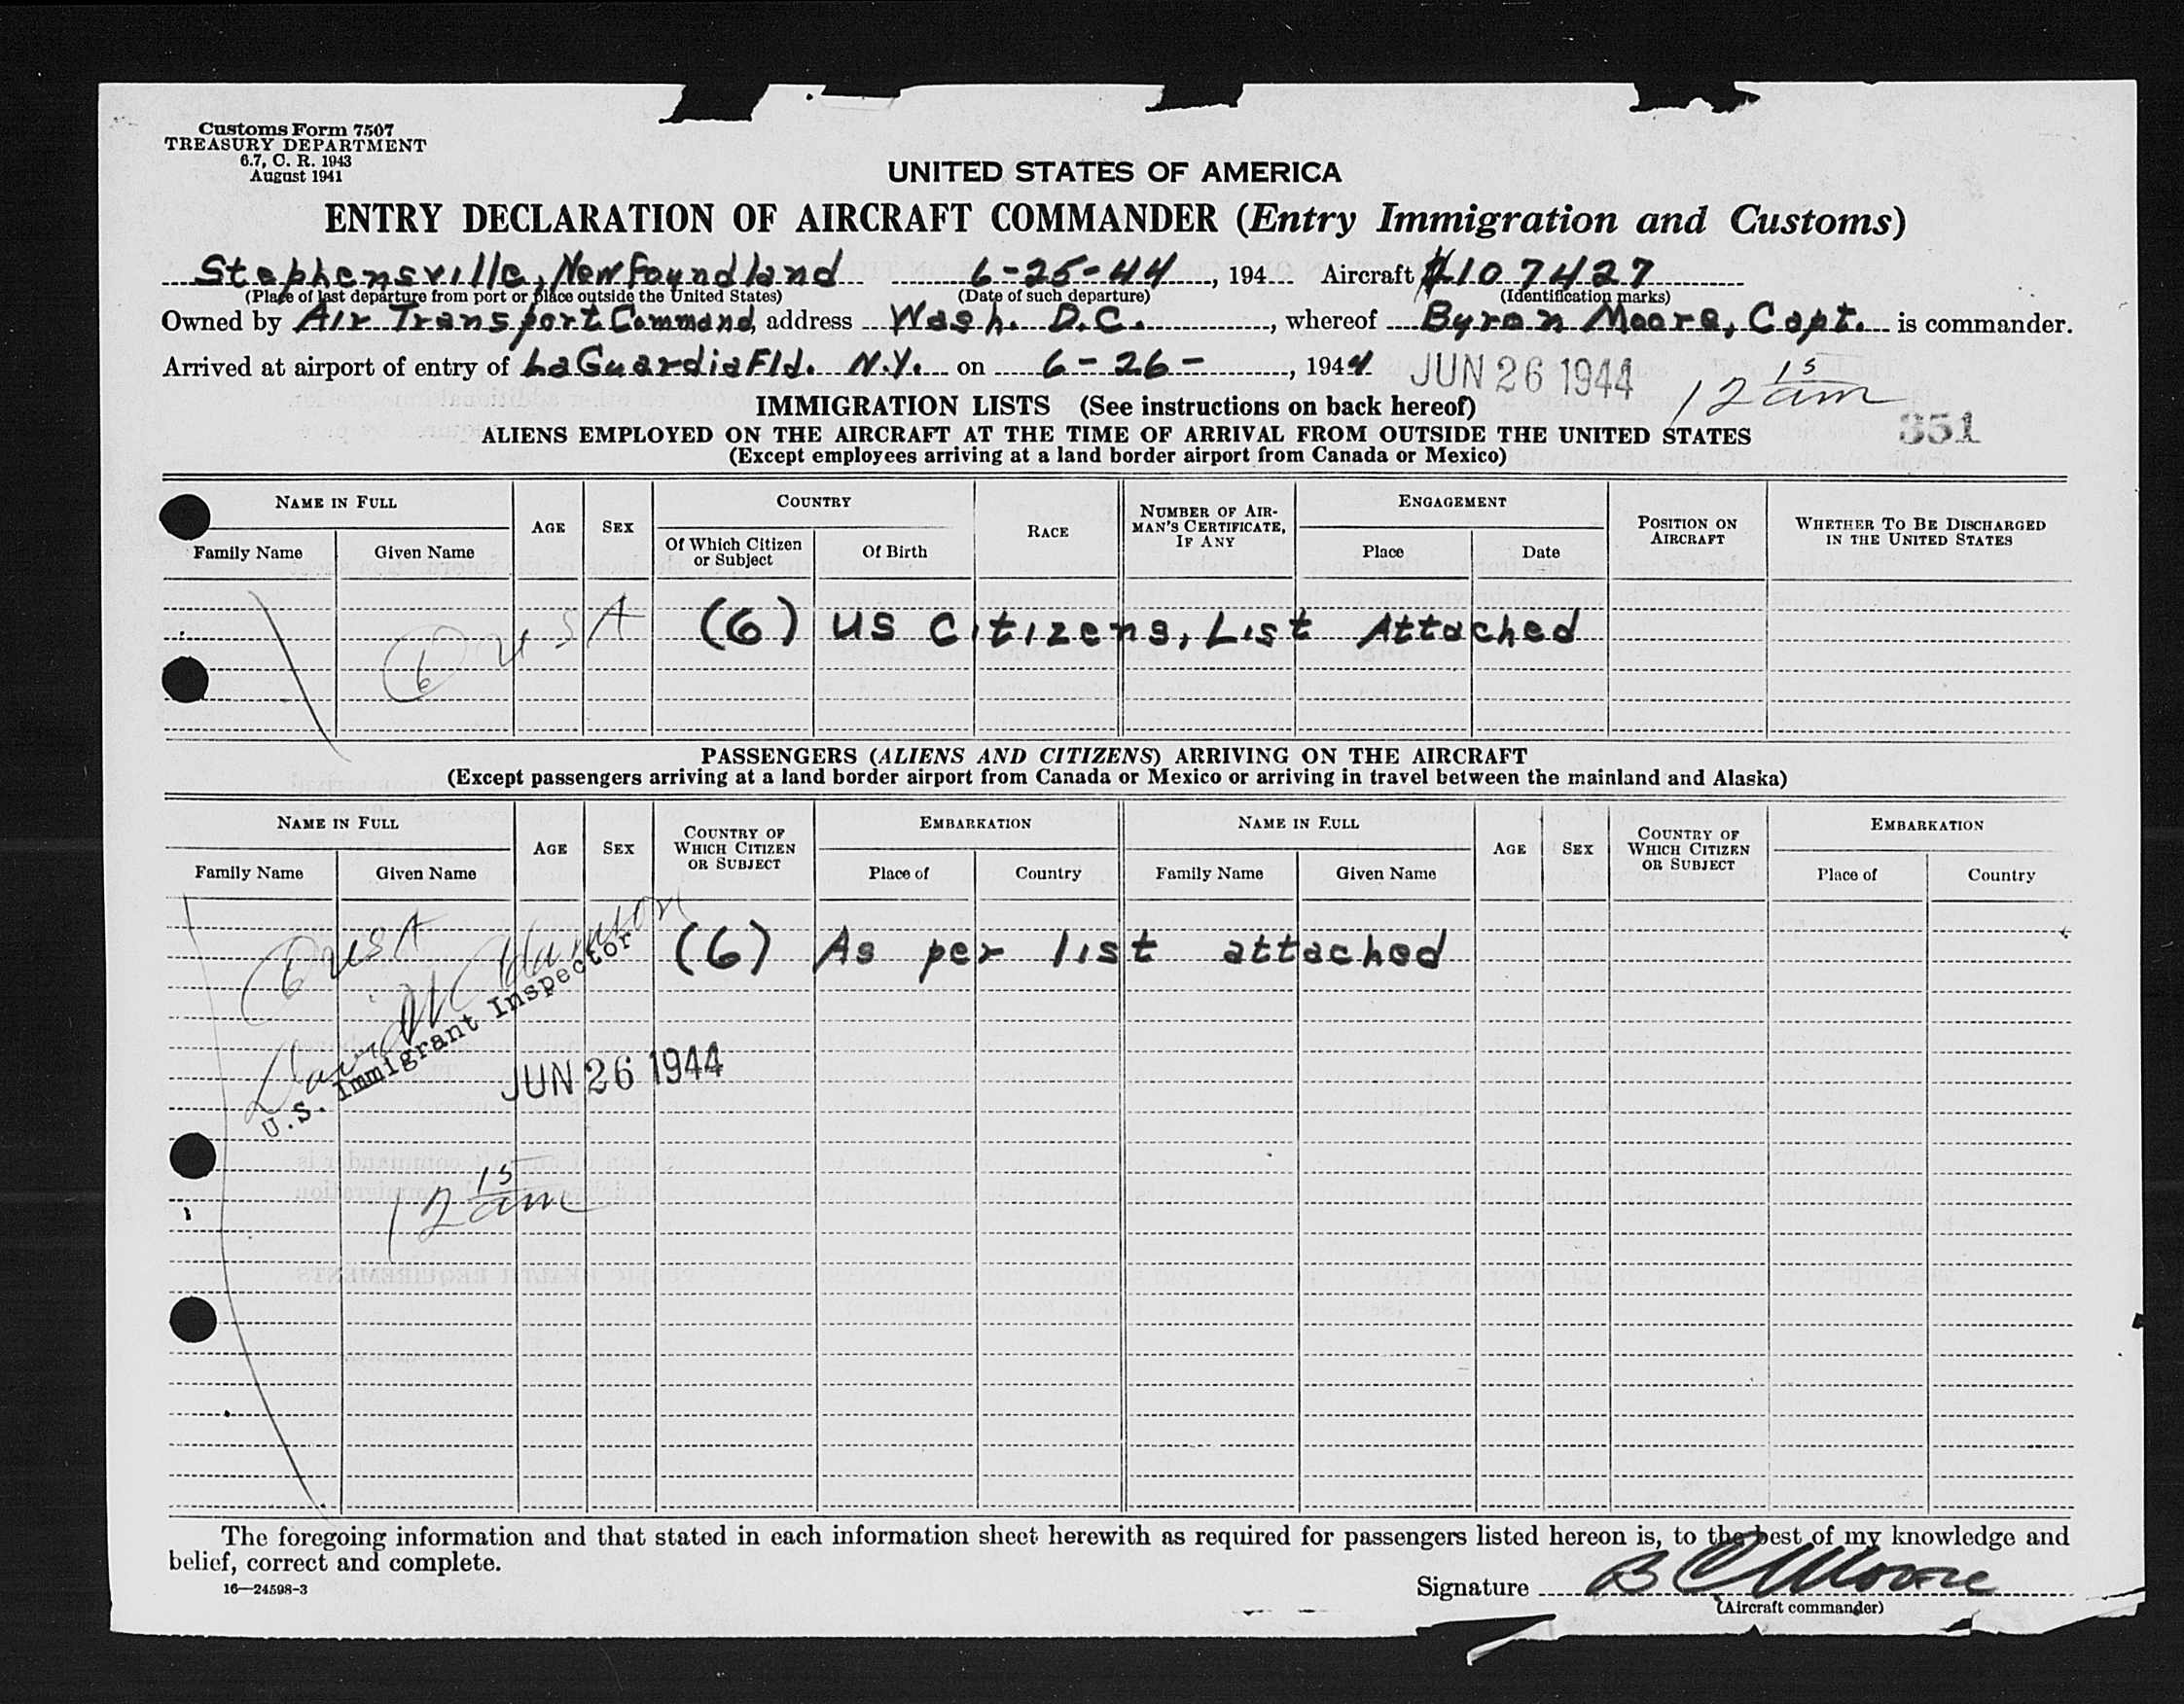 Customs Form 7507
TREASURY DEPARTMENT
6.7, C. R. 1943
August 1941
UNITED STATES OF AMERICA
ENTRY DECLARATION OF AIRCRAFT COMMANDER (Entry Immigration and Customs)
Stephensville, Newfoundland 6-25-44, 194 Aircraft 107427
(Place of last departure from port or place outside the United States) (Date of such departure) (Identification marks)
Owned by Air Transport Command, address Wash. D.C., whereof Byron Moore, Capt. is commander.
Arrived at airport of entry of LaGuardia Fld. N.Y. on 6-26-, 1944 JUN 26 1944 12 15 am
IMMIGRATION LISTS (See instructions on back hereof)
ALIENS EMPLOYED ON THE AIRCRAFT AT THE TIME OF ARRIVAL FROM OUTSIDE THE UNITED STATES 351
(Except employees arriving at a land border airport from Canada or Mexico)
NAME IN FULL AGE SEX COUNTRY RACE NUMBER OF AIR-MAN'S CERTIFICATE, IF ANY ENGAGEMENT POSITION ON AIRCRAFT WHETHER TO BE DISCHARGED IN THE UNITED STATES
Family Name Given Name Of Which Citizen or Subject Of Birth Place Date
6 USA (6) US Citizens, List Attached
PASSENGERS (ALIENS AND CITIZENS) ARRIVING ON THE AIRCRAFT
(Except passengers arriving at a land border airport from Canada or Mexico or arriving in travel between the mainland and Alaska)
NAME IN FULL AGE SEX COUNTRY OF WHICH CITIZEN OR SUBJECT EMBARKATION NAME IN FULL AGE SEX COUNTRY OF WHICH CITIZEN OR SUBJECT EMBARKATION
Family Name Given Name Place of Country Family Name Given Name Place of Country
6 USA (6) As per list attached
U.S. Immigrant Inspector
JUN 26 1944
12 15 am
The foregoing information and that stated in each information sheet herewith as required for passengers listed hereon is, to the best of my knowledge and
belief, correct and complete.
16—24598-3
Signature B C Moore
(Aircraft commander)